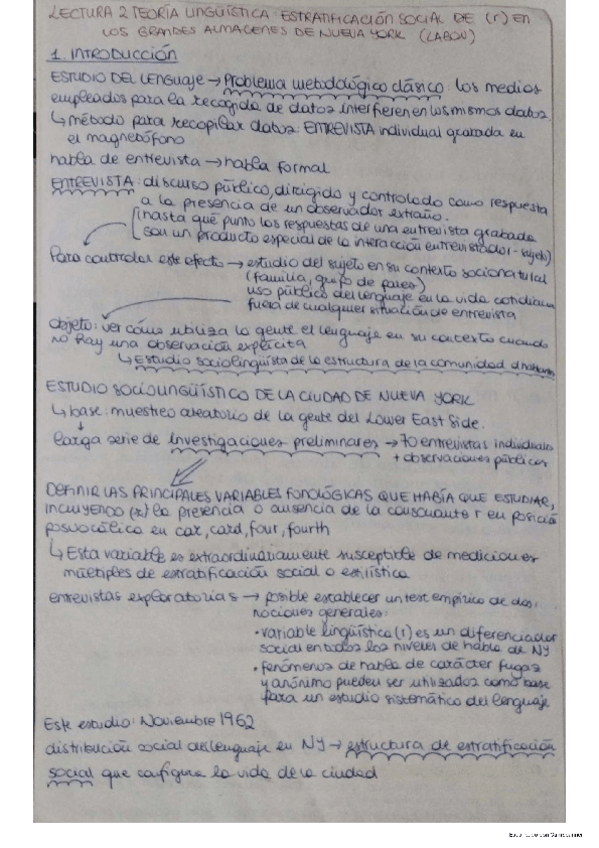 LECTURA 2 TEORÍA LINGÜÍSTICA: ESTRATIFICACIÓN SOCIAL DE (r) EN
LOS GRANDES ALMACENES DE NUEVA YORK (LABOV)
1. INTRODUCCIÓN
ESTUDIO DEL LENGUAJE → Problema metodológico clásico: los medios
empleados para la recogida de datos interfieren en los mismos datos.
↳ método para recopilar datos: ENTREVISTA individual grabada en
el magnetófono
habla de entrevista → habla formal
ENTREVISTA: discurso público, dirigido y controlado como respuesta
a la presencia de un observador extraño.
(hasta qué punto las respuestas de una entrevista grabada
son un producto especial de la interacción entrevistador-sujeto)
Para controlar este efecto → estudio del sujeto en su contexto socionatural
(familia, grupo de pares)
uso público del lenguaje en la vida cotidiana
fuera de cualquier situación de entrevista
Objeto: ver cómo utiliza la gente el lenguaje en su contexto cuando
no hay una observación explícita
↳ Estudio sociolingüista de la estructura de la comunidad
ESTUDIO SOCIOLINGÜÍSTICO DE LA CIUDAD DE NUEVA YORK
↳ base: muestreo aleatorio de la gente del Lower East Side.
larga serie de investigaciones preliminares → 70 entrevistas individuales
+ observaciones públicas
DEFINIR LAS PRINCIPALES VARIABLES FONOLÓGICAS QUE HABÍA QUE ESTUDIAR,
INCLUYENDO (r) la presencia o ausencia de la consonante r en posición
posvocálica en car, card, four, fourth
↳ Esta variable es extraordinariamente susceptible de mediciones
múltiples de estratificación social o estilística
entrevistas exploratorias → posible establecer un test empírico de dos
nociones generales:
• variable lingüística (r) es un diferenciador
social en todos los niveles de habla de NY
• fenómenos de habla de carácter fugaz
y anónimo pueden ser utilizados como base
para un estudio sistemático del lenguaje
Este estudio: Noviembre 1962
distribución social del lenguaje en NY → estructura de estratificación
social que configura la vida de la ciudad